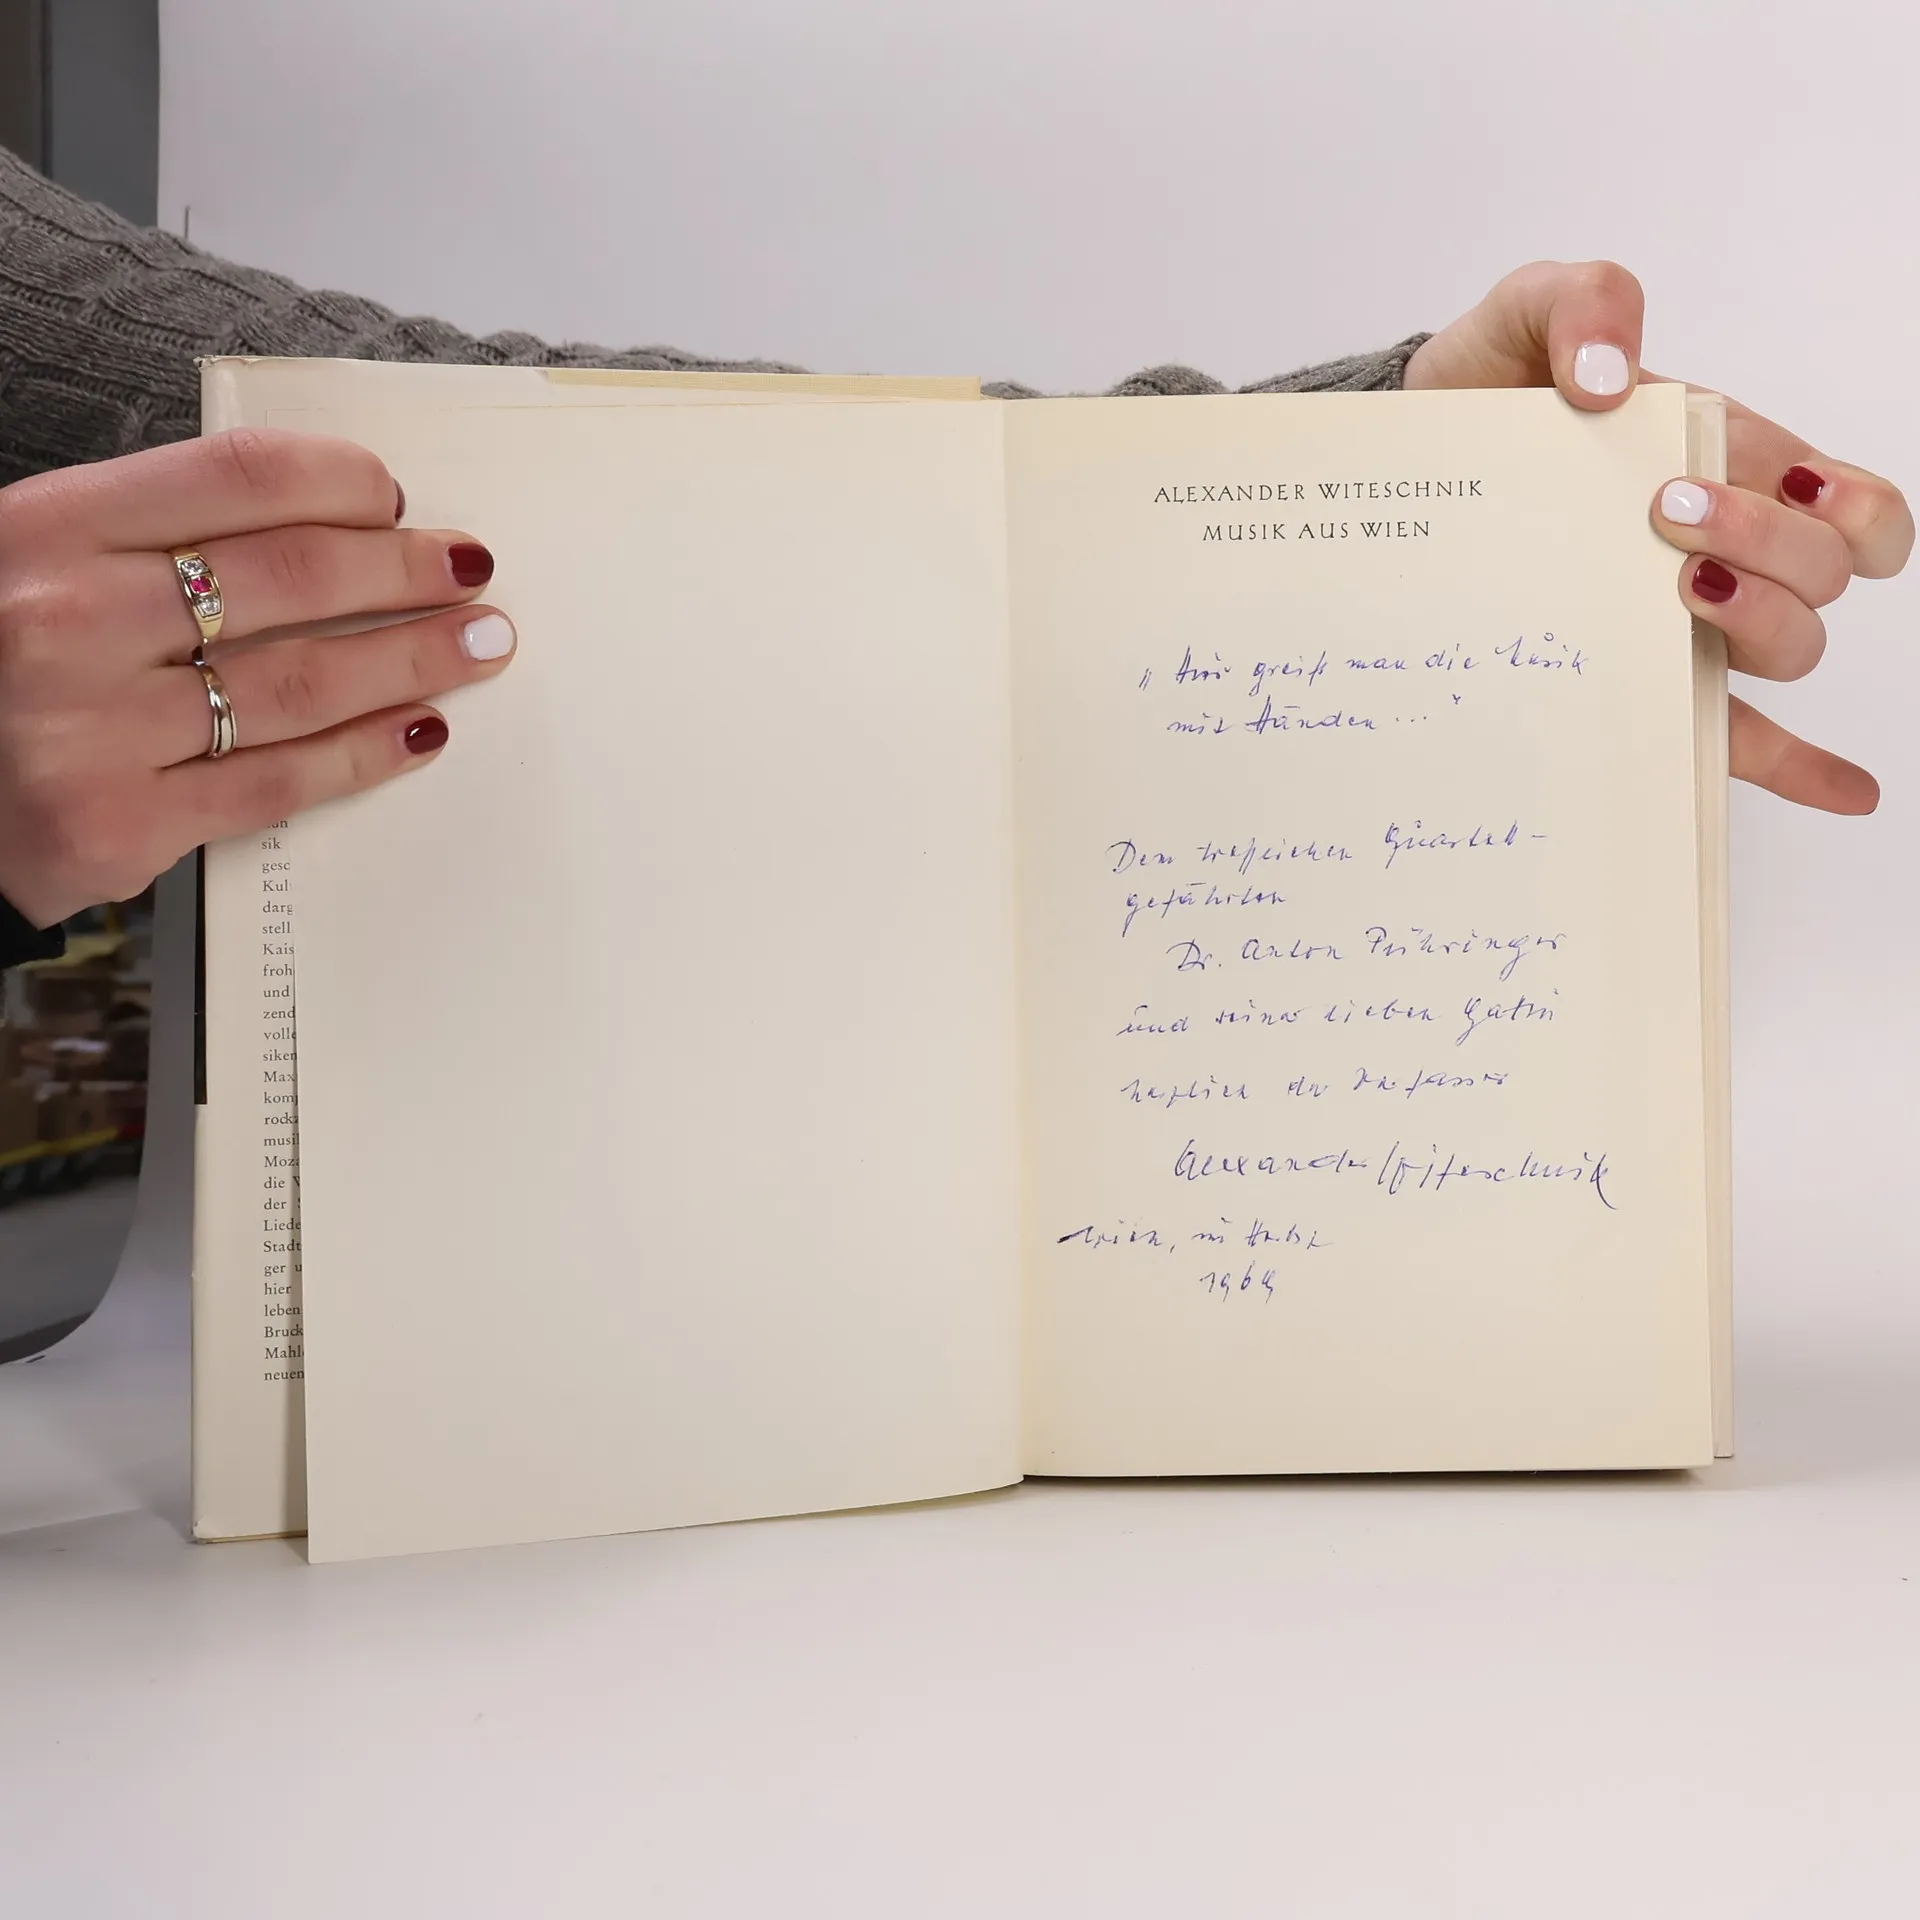 sik
gesc
Kul
darg
stell
Kais
froh
und
zend
volle
siken
Max
kom
rock
musi
Moza
die
der
Liede
Stadt
ger u
hier
leben
Bruck
Mahl
neuen
ALEXANDER WITESCHNIK
MUSIK AUS WIEN
„Hier greift man die Musik
mit Händen ..."
Dem trefflichen Quartett-
gefährten
Dr. Anton Pühringer
und seiner lieben Gattin
herzlich der Verfasser
Alexander Witeschnik
Wien, im Herbst
1969